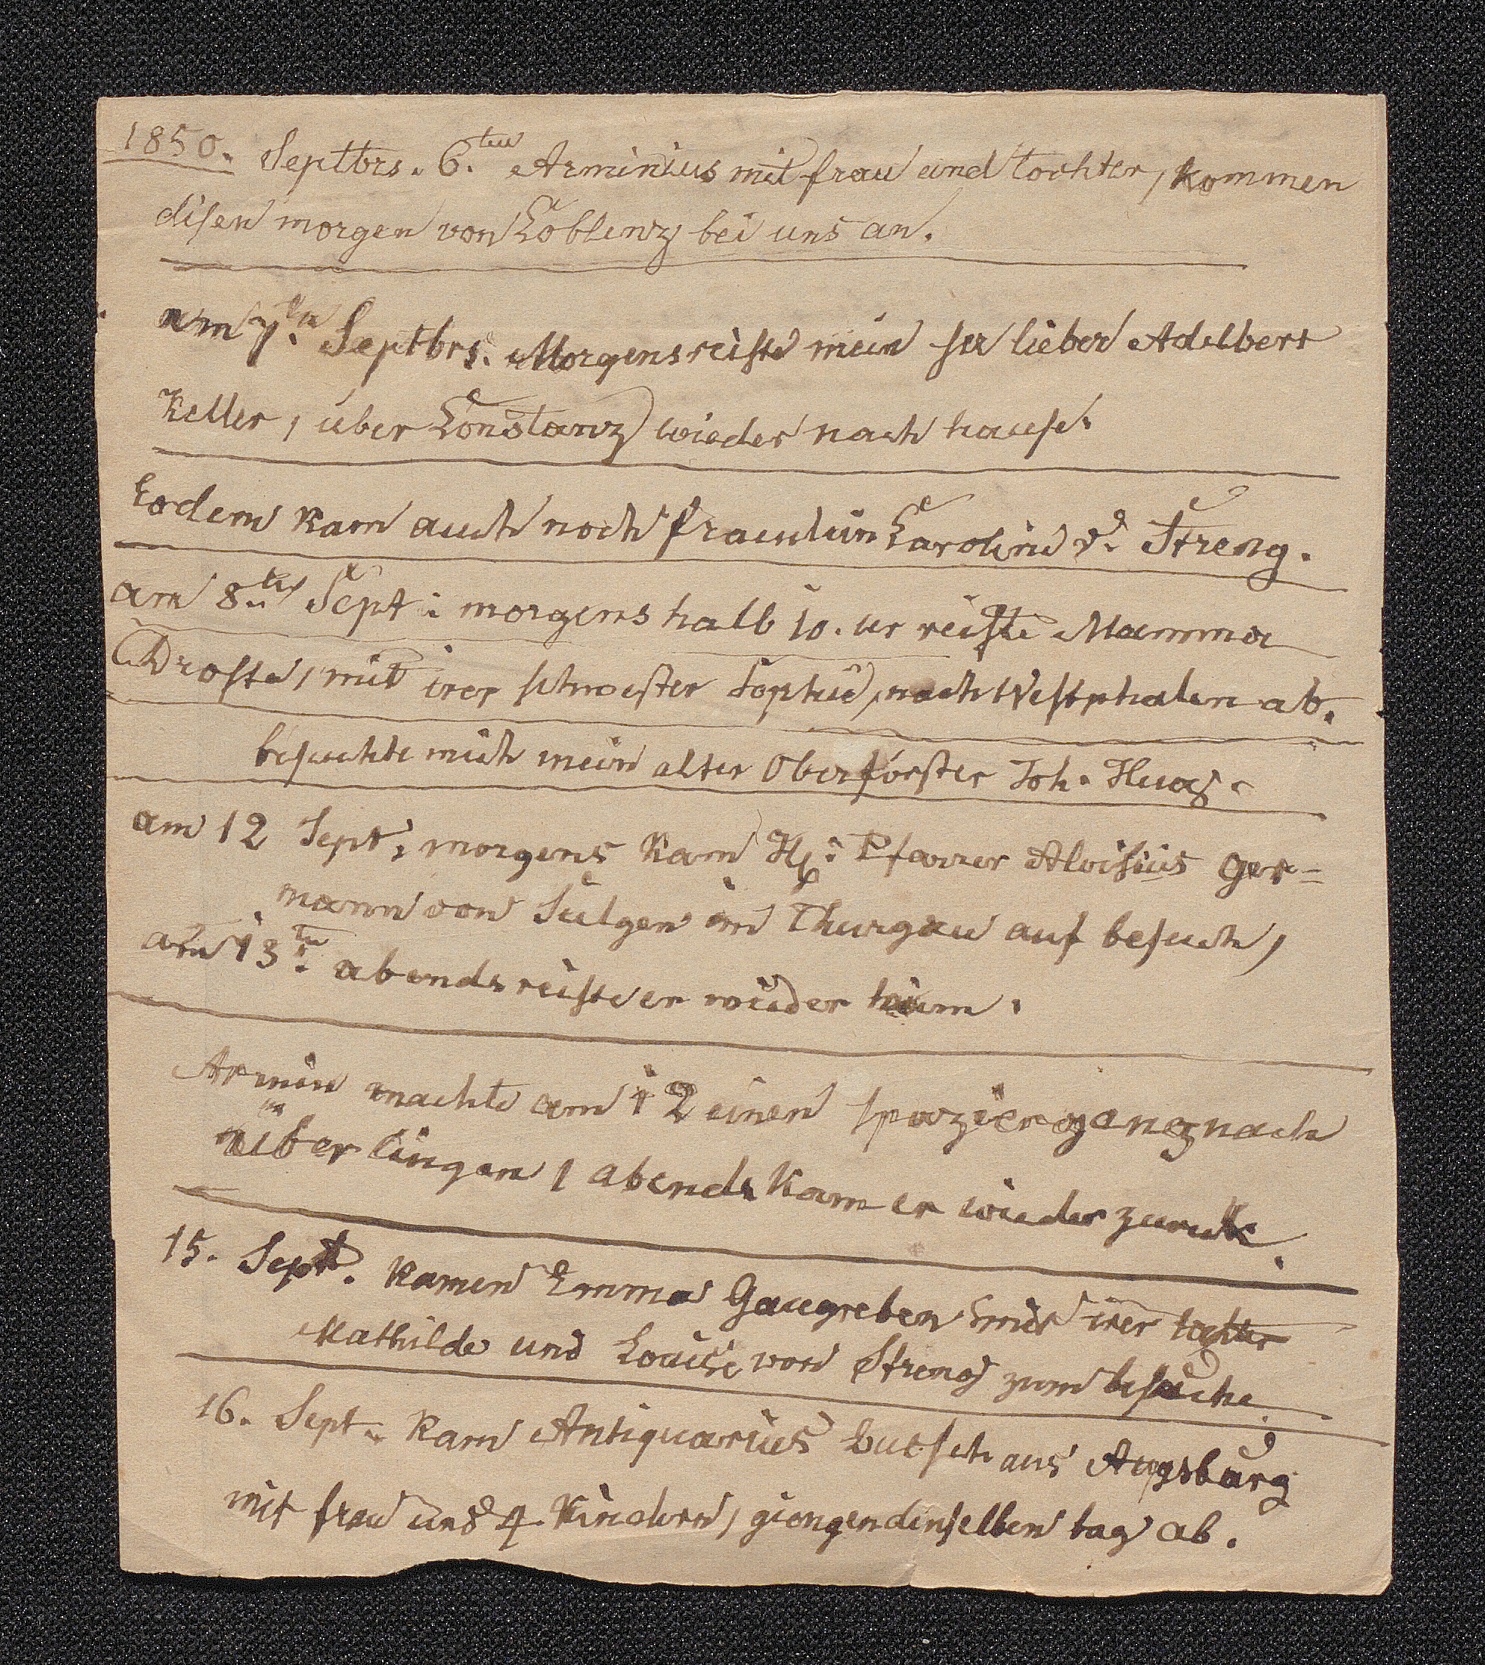 1850. Septbrs. 6.ten Arminius mit frau und tochter, kommen
disen morgen von Coblenz bei uns an.
am 7.ten Septbrs. Morgens reiste mein ser lieber Adelbert
Keller, über Constanz wieder nach hause.
Eodem kam auch noch fraeulein Caroline v. Streng.
am 8.ten Sept: morgens halb 10. ur reiste Mamma
Droste, mit irer schwester Sophie, nach Westphalen ab.
besuchte mich mein alter Oberförster Joh. Huag.
am 12 Sept, morgens kam H: Pfarrer Aloisius Ger=
mann von Sulgen im Thurgau auf besuch,
am 13.ten abends reiste er wieder heim.
Armin machte am 12 einen spaziergang nach
überlingen, abends kam er wieder zurük.
15. Sept. kamen Emma Gaugreben mit irer tochter
Mathilde und Louise von Streng zum besuche.
16. Sept. kam Antiquarius butsch aus Augsburg
mit frau und 4 kindern, giengen denselben tag ab.